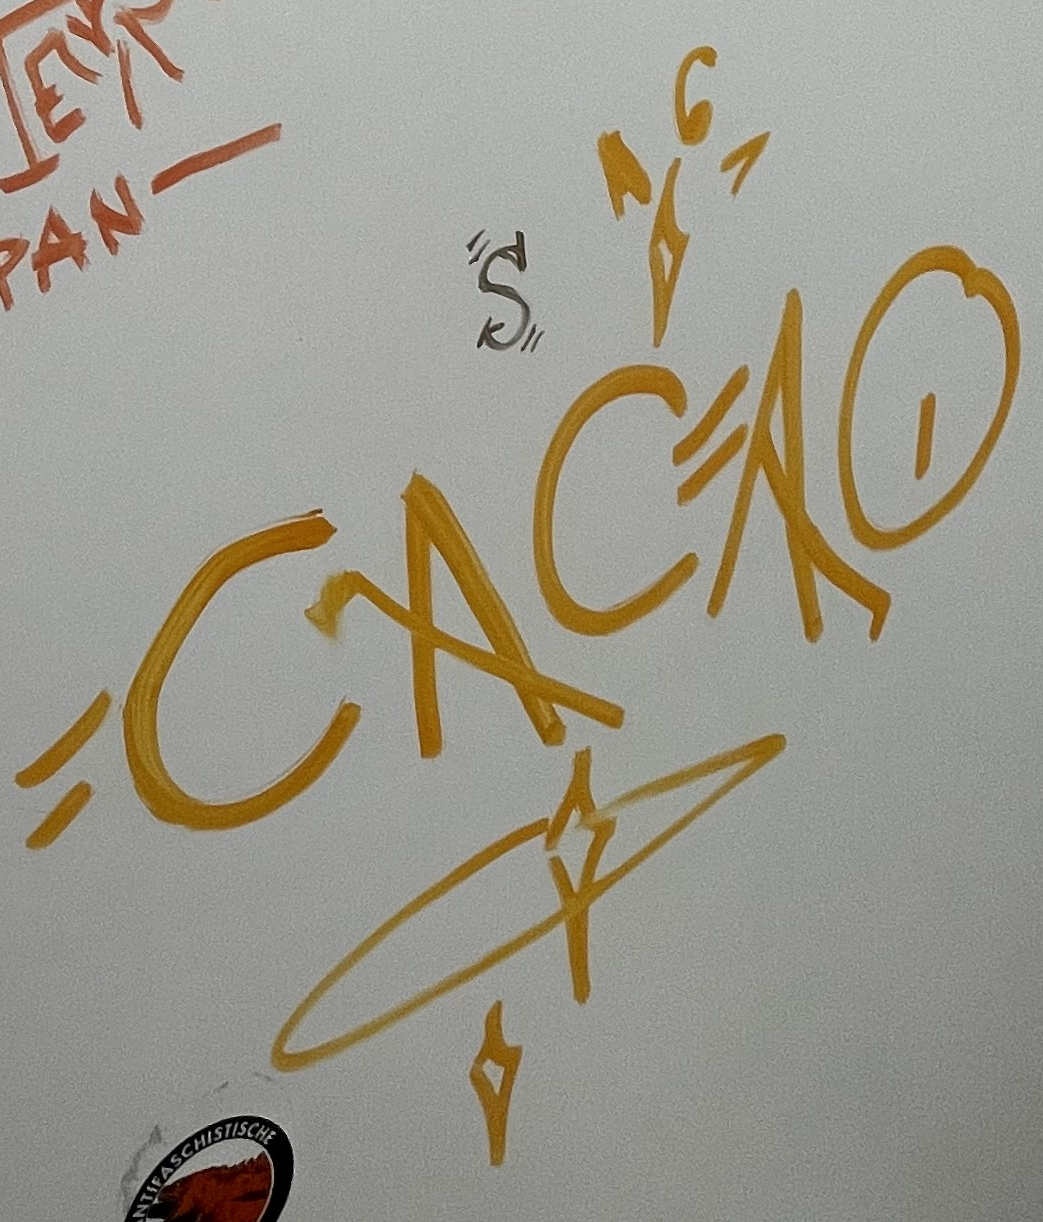 PAN
"S"
CACAO
ANTIFASCHISTISCHE